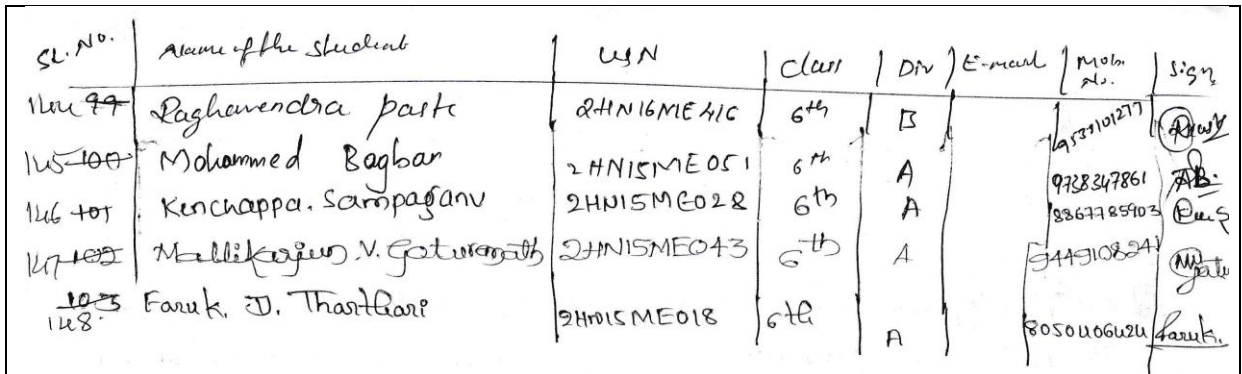 SL. No. Name of the student USN class Div E-mail Mob. No. Sign
144 99 Raghavendra paste 2HN16ME416 6th B 9538101277
145 100 Mohammed Bagban 2HN15ME051 6th A 9738347861 AB.
146 101 Kenchappa. Sampaganv 2HN15ME028 6th A 8867785903
147 102 Mallikarjun V. 2HN15ME043 6th A 9449108241
103 148. Faruk. D. Tharthari 2HN15ME018 6th A 8050406424 Faruk.